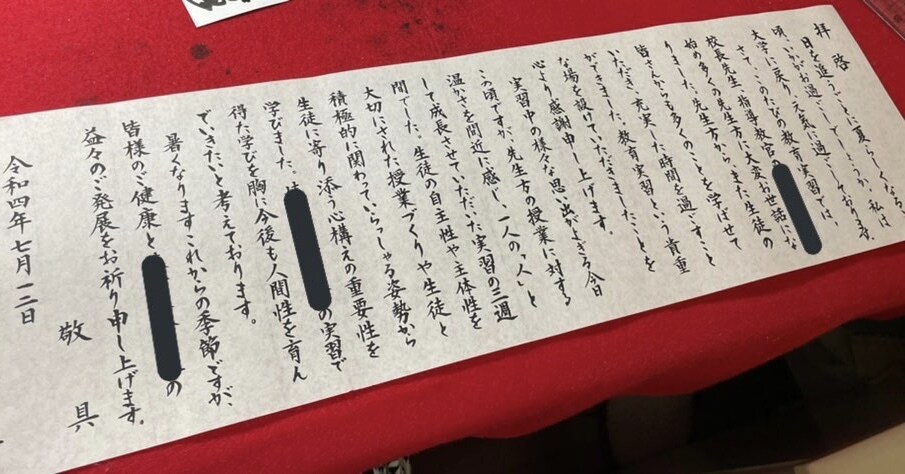 拝啓
日を追うごとに夏らしくなる
頃、いかがお過ごしでしょうか。私は
大学に戻り、元気に過ごしております。
さて、このたびの教育実習では、
校長先生、指導教官の
始め多くの先生方に大変お世話にな
りました。先生方から、また生徒の
皆さんからも多くのことを学ばせて
いただき、充実した時間を過ごすこと
ができました。教育実習という貴重
な場を設けていただきましたことを
心より感謝申し上げます。
実習中の様々な思い出がよぎる今日
この頃ですが、先生方の授業に対する
温かさを間近に感じ、一人の"人"と
して成長させていただいた実習の三週
間でした。生徒の自主性や主体性を
大切にされた授業づくりや生徒と
積極的に関わっていらっしゃる姿勢から
生徒に寄り添う心構えの重要性を
学びました。
の実習で
得た学びを胸に今後も人間性を育ん
でいきたいと考えております。
暑くなりますこれからの季節ですが、
皆様のご健康と
の
益々のご発展をお祈り申し上げます。
敬具
令和四年七月一二日